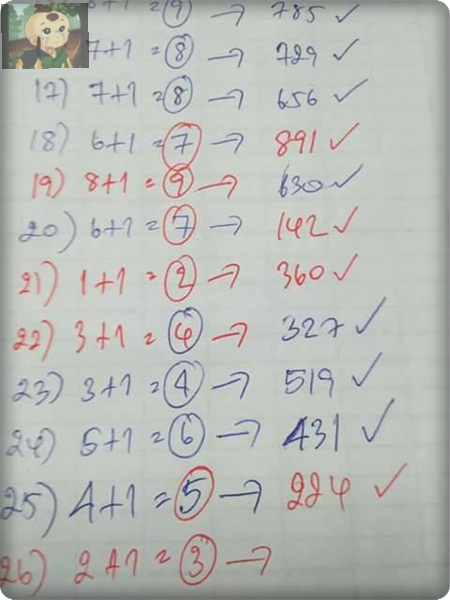 +1 = 9 → 785 ✓
7+1 = 8 → 729 ✓
17) 7+1 = 8 → 656 ✓
18) 6+1 = 7 → 891 ✓
19) 8+1 = 9 → 630 ✓
20) 6+1 = 7 → 142 ✓
21) 1+1 = 2 → 360 ✓
22) 3+1 = 4 → 327 ✓
23) 3+1 = 4 → 519 ✓
24) 5+1 = 6 → 431 ✓
25) 4+1 = 5 → 224 ✓
26) 2+1 = 3 →